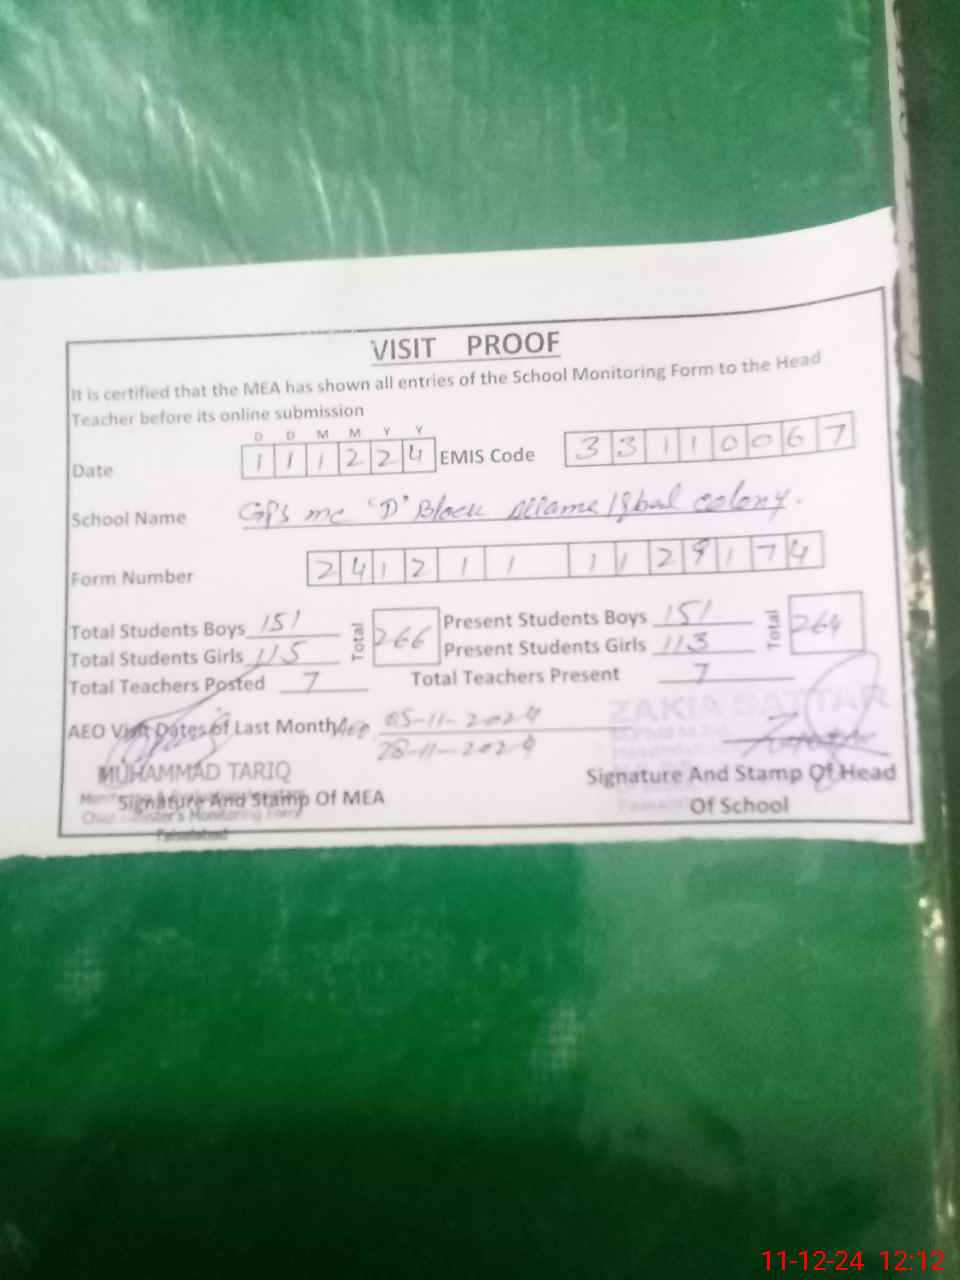 VISIT PROOF
It is certified that the MEA has shown all entries of the School Monitoring Form to the Head
Teacher before its online submission
D D M M Y Y
Date 1 1 1 2 2 4 EMIS Code 3 3 1 1 0 0 6 7
School Name GPS mc "D" Block Allama Iqbal colony.
Form Number 2 4 1 2 1 1 1 1 2 9 1 7 4
Total Students Boys 151 Total 266 Present Students Boys 151 Total 264
Total Students Girls 115 Present Students Girls 113
Total Teachers Posted 7 Total Teachers Present 7
ZAKIA SATTAR
AEO Visit Dates of Last Month 05-11-2024
28-11-2024
MUHAMMAD TARIQ
Signature And Stamp Of MEA
Signature And Stamp Of Head
Of School
Chief Minister's Monitoring Force
Faisalabad
11-12-24 12:12